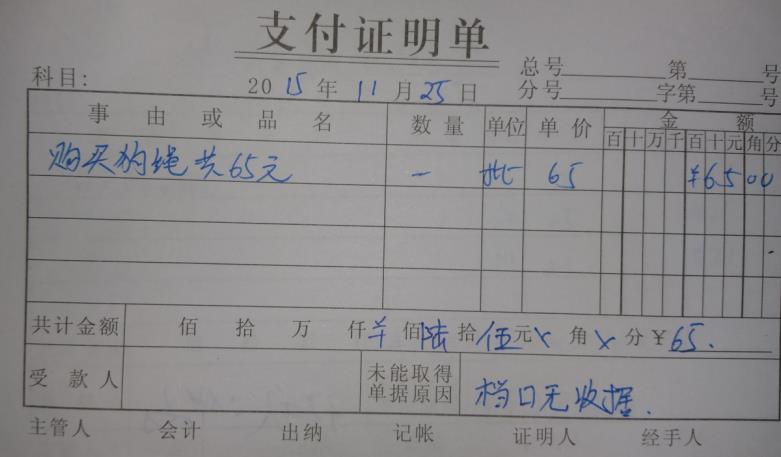 支付证明单
科目: 2015年11月25日 总号 第 号
分号 字第 号
事由或品名 数量 单位 单价 金额
百 十 万 千 百 十 元 角 分
购买狗绳共65元 一 批 65 ¥6500
共计金额 佰 拾 万 仟 羊 佰 陆 拾 伍 元 x 角 x 分 ¥ 65.
受款人 未能取得单据原因 档口无收据.
主管人 会计 出纳 记帐 证明人 经手人